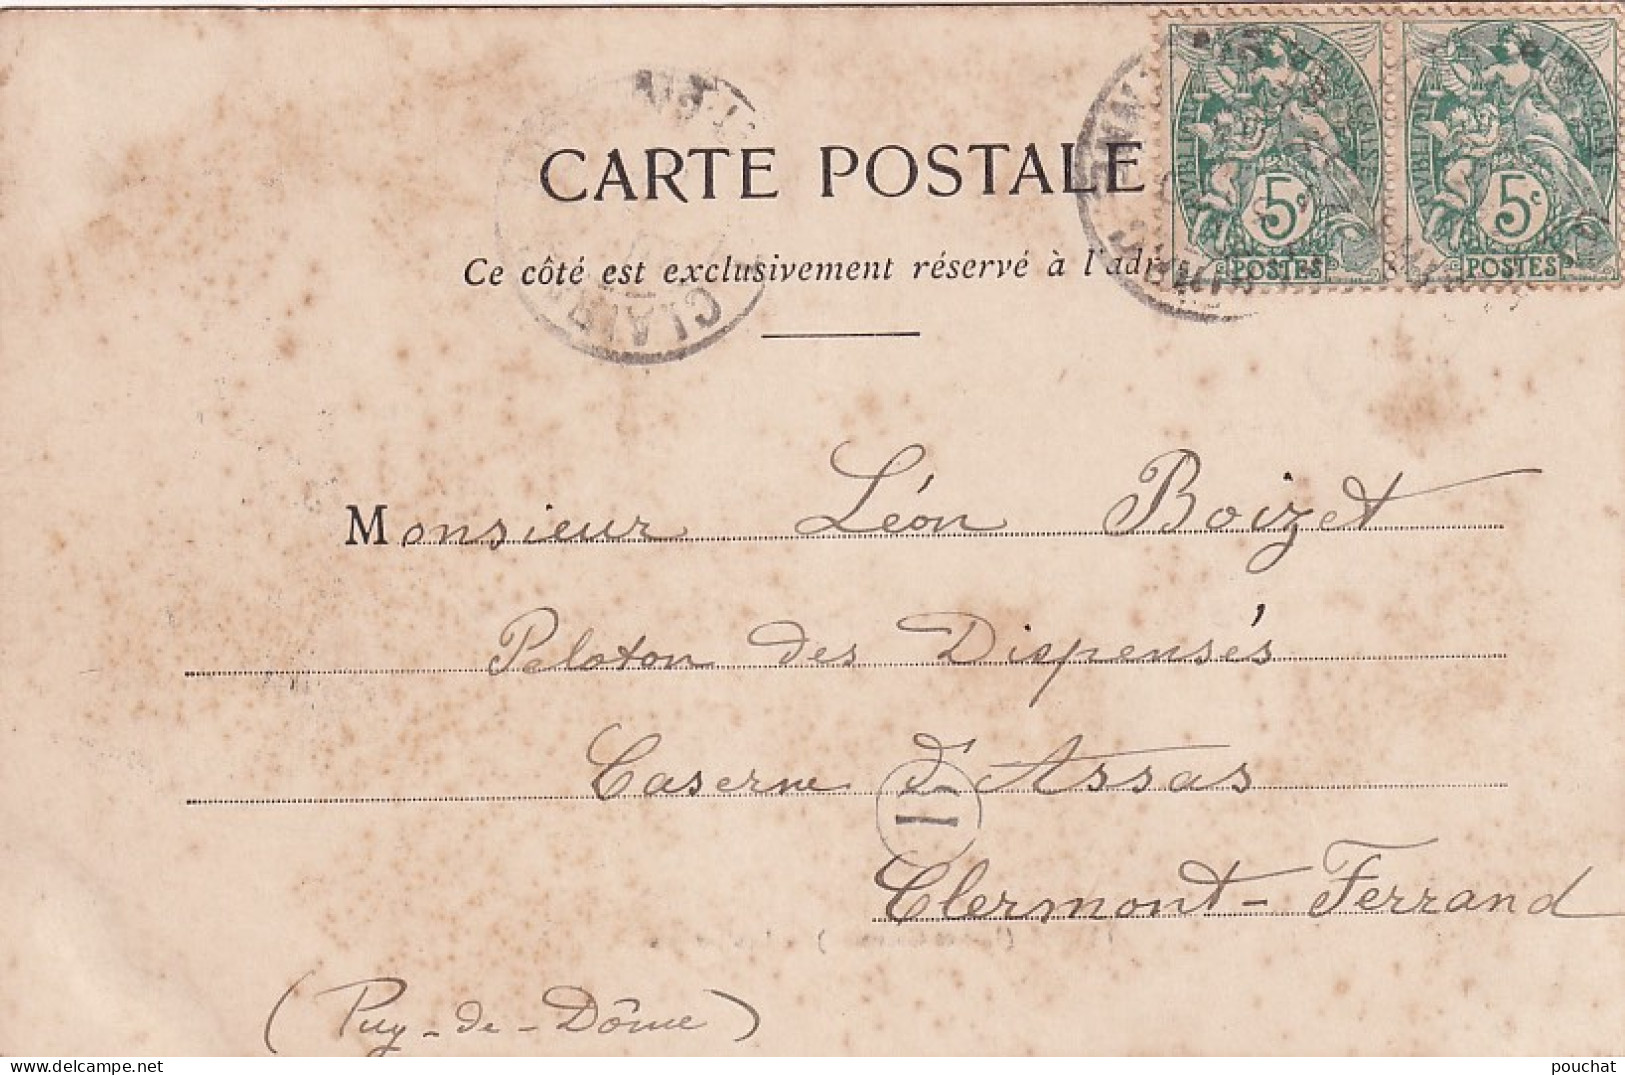 CARTE POSTALE
Ce côté est exclusivement réservé à l'adr
FRANÇAISE
5c
POSTES
FRANÇAISE
5c
POSTES
Monsieur Léon Boizet
Peloton des Dispensés
Caserne d'Assas
Clermont-Ferrand
(Puy-de-Dôme)
pouchat